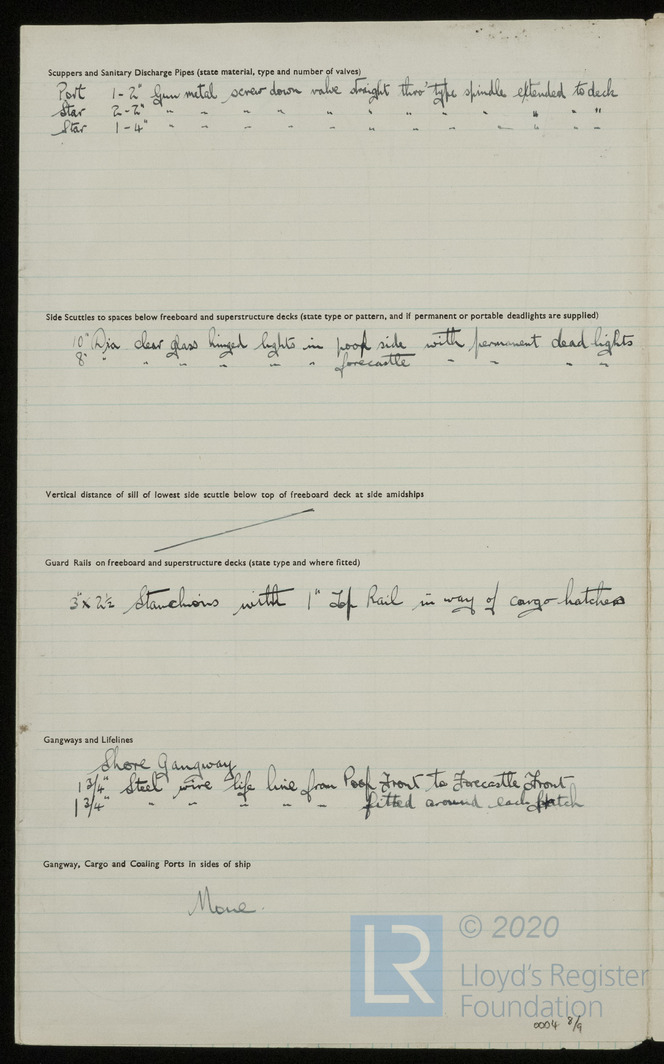 Scuppers and Sanitary Discharge Pipes (state material, type and number of valves)
Port 1-2" Gun metal screw down valve straight thro' type spindle extended to deck
Star 2-2" " " " " " " " " " " " "
Star 1-4" " " " " " " " " " " " "
Side Scuttles to spaces below freeboard and superstructure decks (state type or pattern, and if permanent or portable deadlights are supplied)
10" Dia clear glass hinged lights in poop side with permanent dead lights
8" " " " " " " forecastle " " " "
Vertical distance of sill of lowest side scuttle below top of freeboard deck at side amidships
Guard Rails on freeboard and superstructure decks (state type and where fitted)
3" x 2½ Stanchions with 1" Top Rail in way of cargo hatches
Gangways and Lifelines
Shore Gangway
1 3/4" Steel wire life line from Poop Front to Forecastle Front
1 3/4" " " " " " fitted around each hatch
Gangway, Cargo and Coaling Ports in sides of ship
None.
LR
© 2020
Lloyd's Register
Foundation
0004 8/9